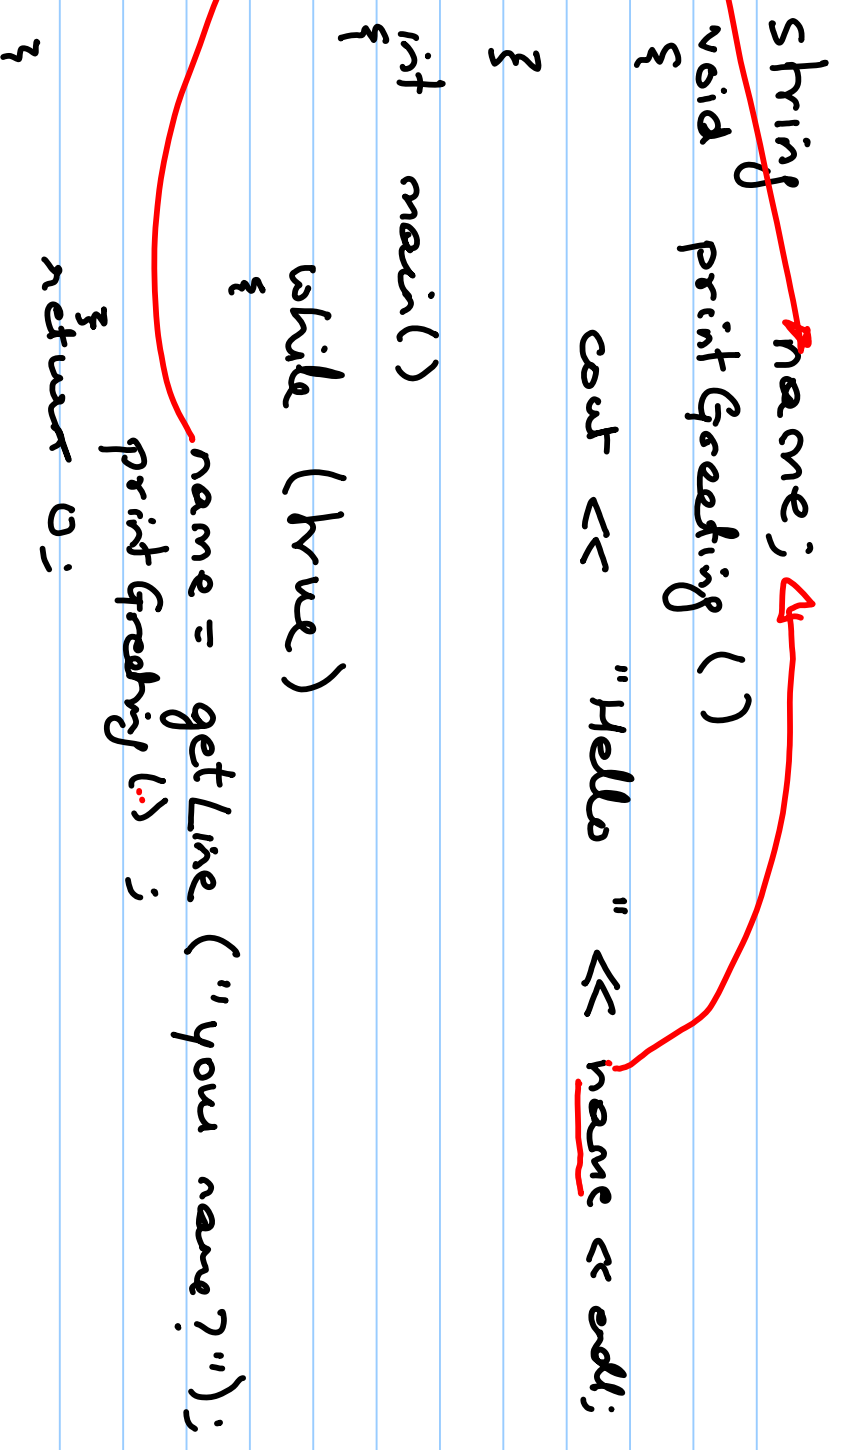 string name;
void printGreeting ()
{
cout << "Hello " << name << endl;
}
int main()
{
while (true)
{
name = getLine ("your name?");
printGreeting (..) ;
}
return 0;
}